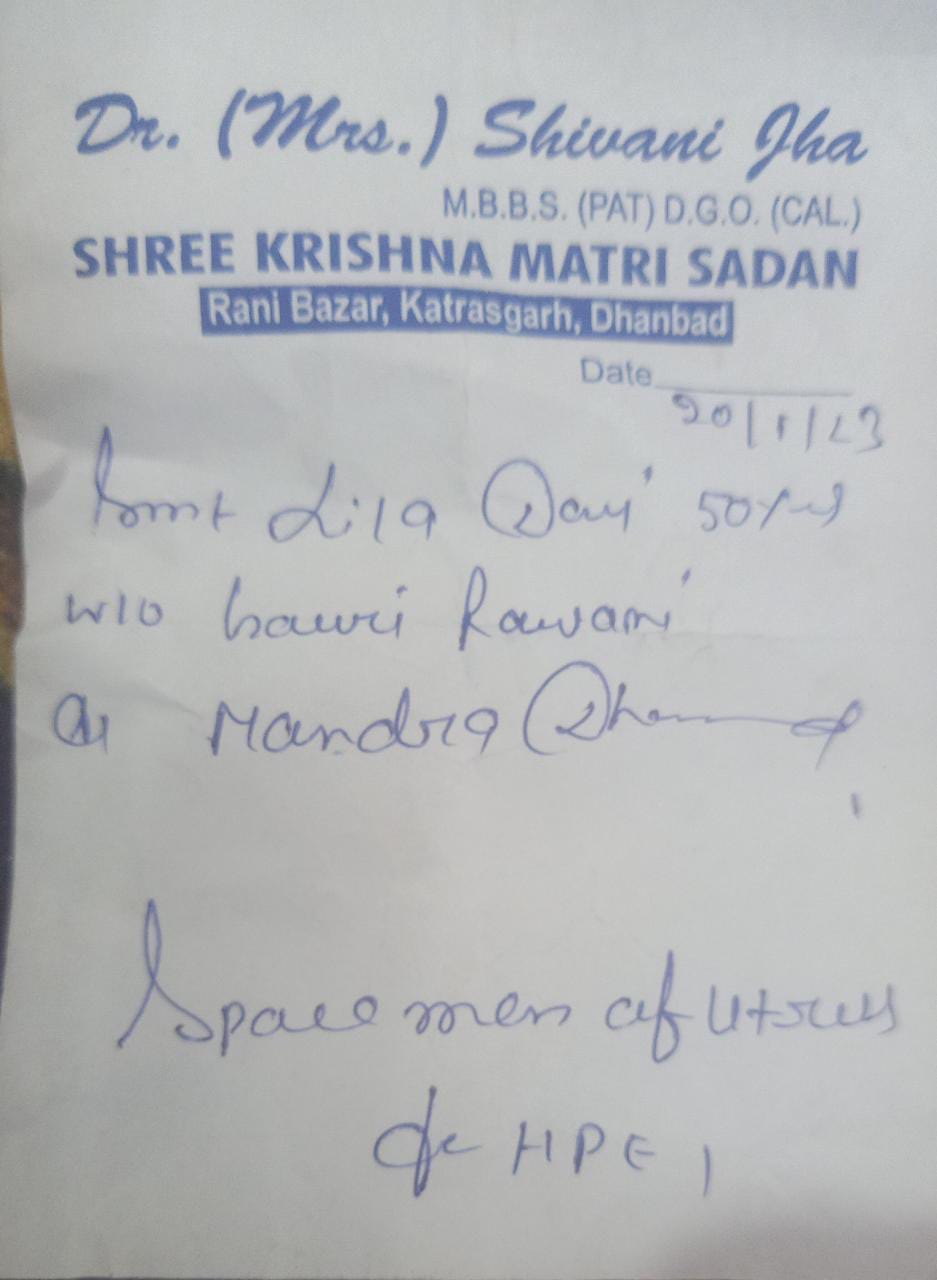 Dr. (Mrs.) Shivani Jha
M.B.B.S. (PAT) D.G.O. (CAL.)
SHREE KRISHNA MATRI SADAN
Rani Bazar, Katrasgarh, Dhanbad
Date
20/1/23
Smt Lila Davi 50 yrs
W/O Rawani
Mandra
Spacemen of Utrus
for HPE